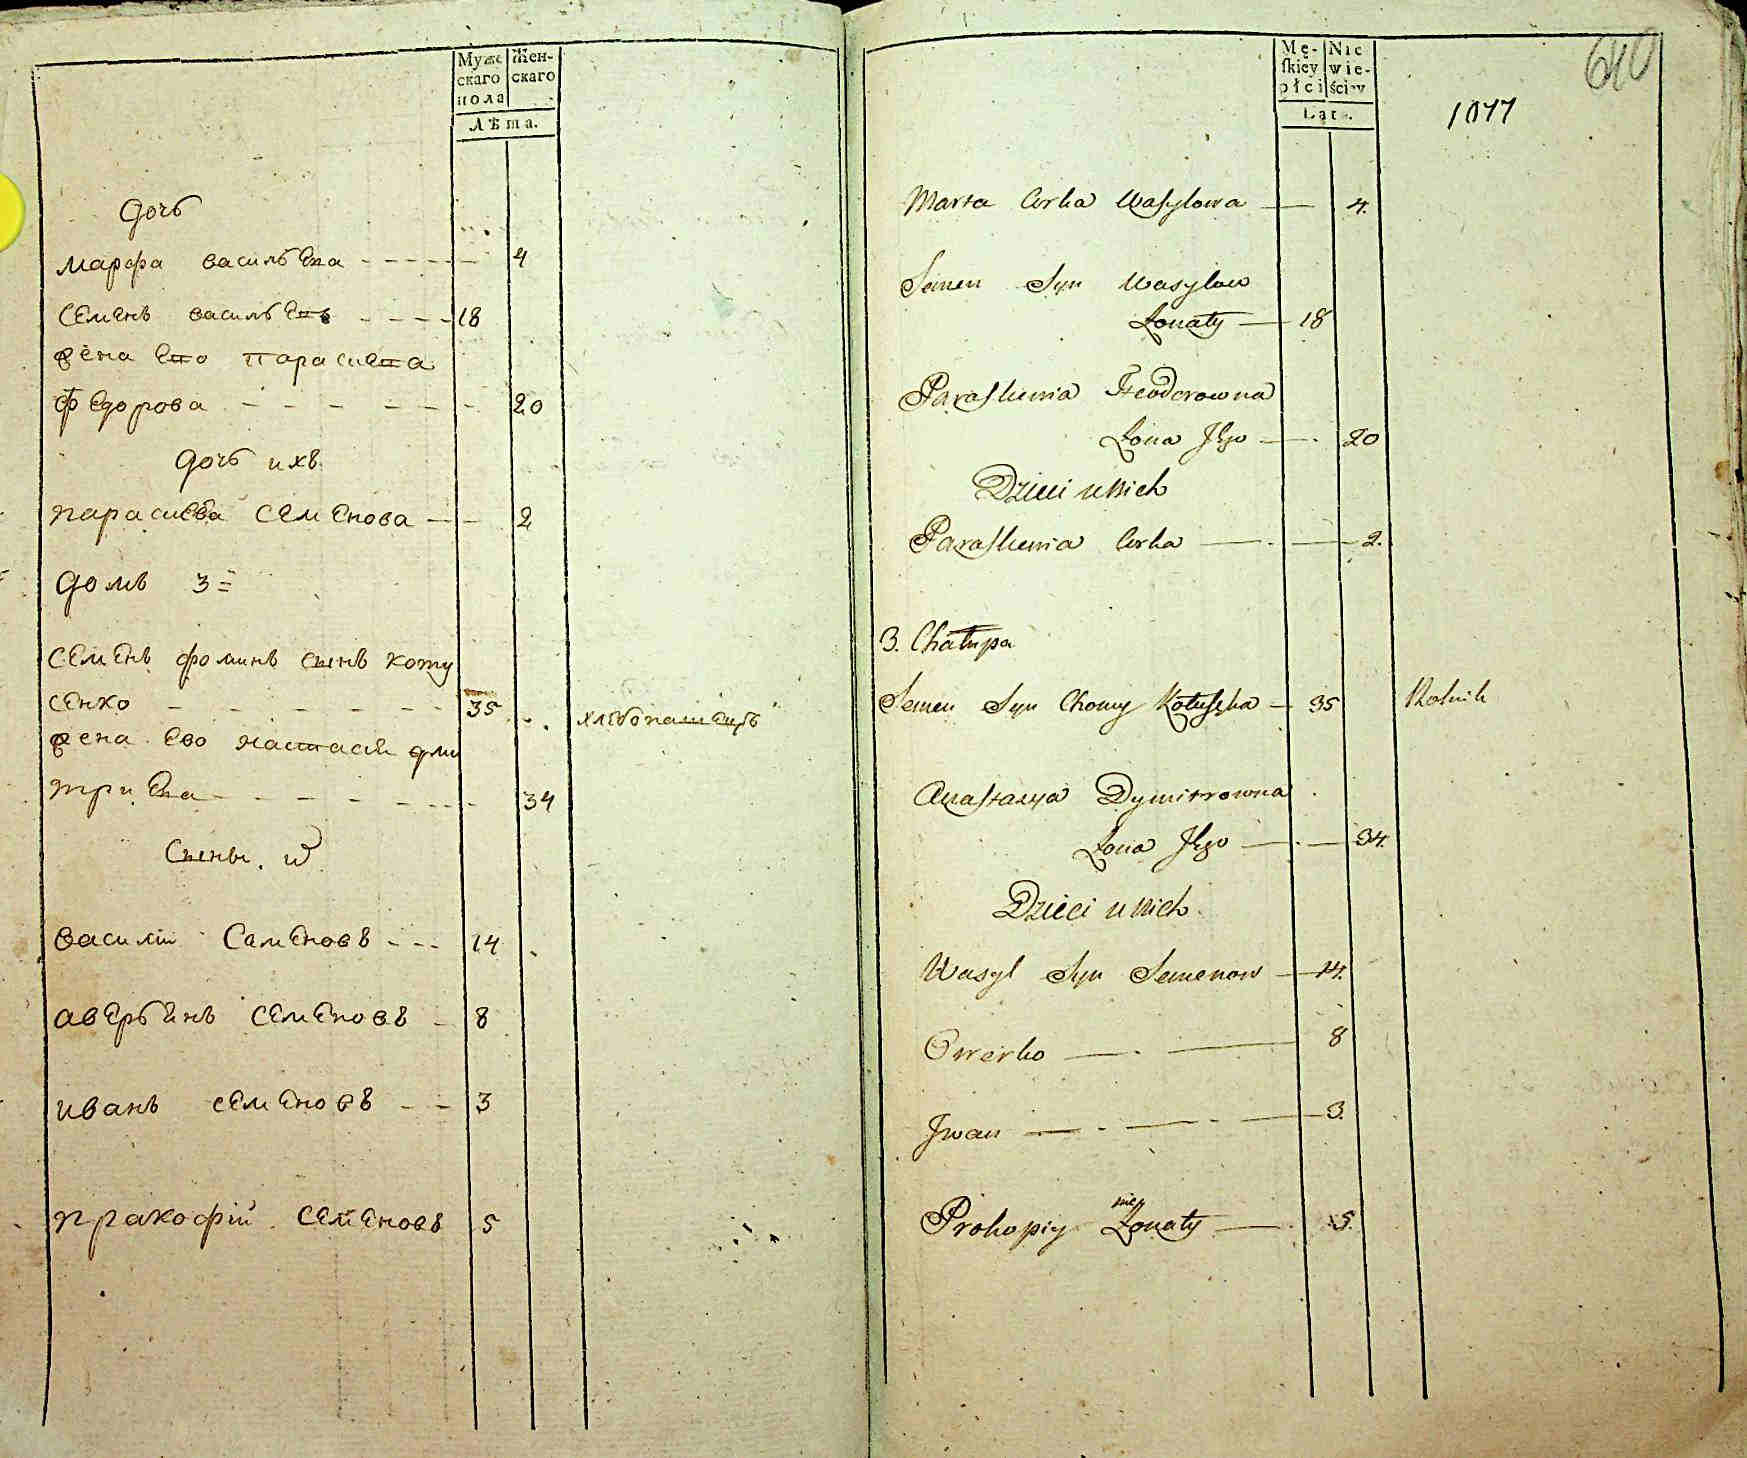 Муже
скаго
пола
Жен-
скаго
Лѣта.
дочь
марфа василѣва 4
семенъ василѣвъ 18
жена ево параскева
федорова 20
дочь ихъ
параскева семенова 2
домъ 3=
семенъ фоминъ сынъ коту
сенко 35 хлебопашецъ
жена ево настася дми
триева 34
Сыны. их
василий Саменовъ 14
аверьянъ семеновъ 8
иванъ семеновъ 3
пракофій семеновъ 5
Mę-
skiey
płci
Nie
wie-
ściey
Lata.
640
1077
Marta Corka Wasylowa 4.
Semen Syn Wasylow
Żonaty 18
Paraskewia Fteodorowna
Żona Jego 20
Dzieci u Nich
Paraskewia Corka 2.
3. Chałupa
Semen Syn Chomy Kotuszka 35 Rolnik
Anastasya Dymitrowna
Żona Jego 34.
Dzieci u Nich
Wasyl Syn Semenow 14.
Owerko 8
Jwan 3.
nie
Prokopiy Żonaty 5.